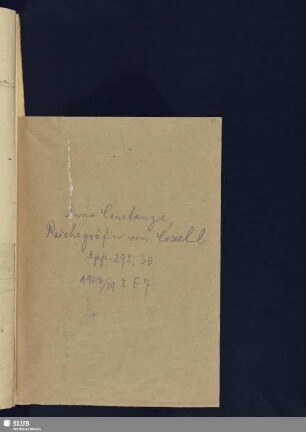 Anna Constanze,
Reichsgräfin von Cosell
App. 292, 33
1928/29 I E 7
SLUB
Wir führen Wissen.